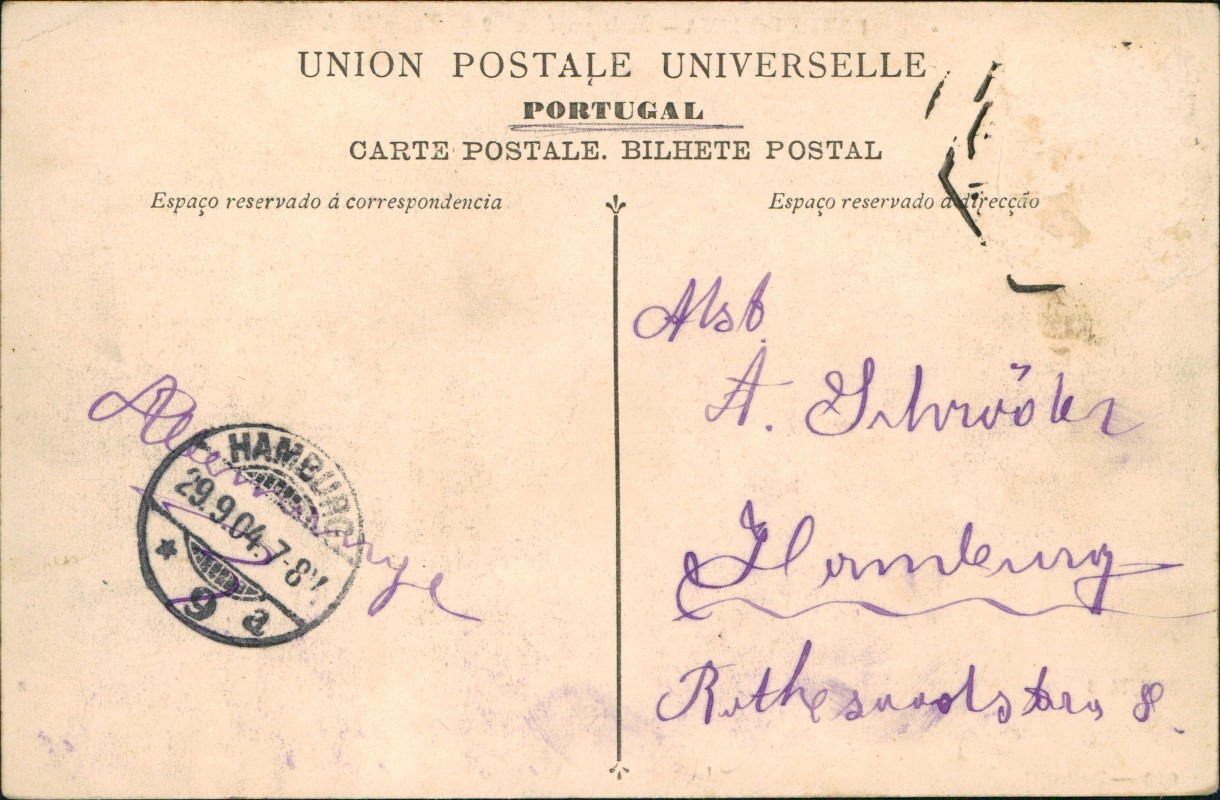 UNION POSTALE UNIVERSELLE
PORTUGAL
CARTE POSTALE. BILHETE POSTAL
Espaço reservado á correspondencia
Espaço reservado á direcção
A. Schröder
Hamburg
8.
HAMBURG
29.9.04. 7-8V
* 9 a